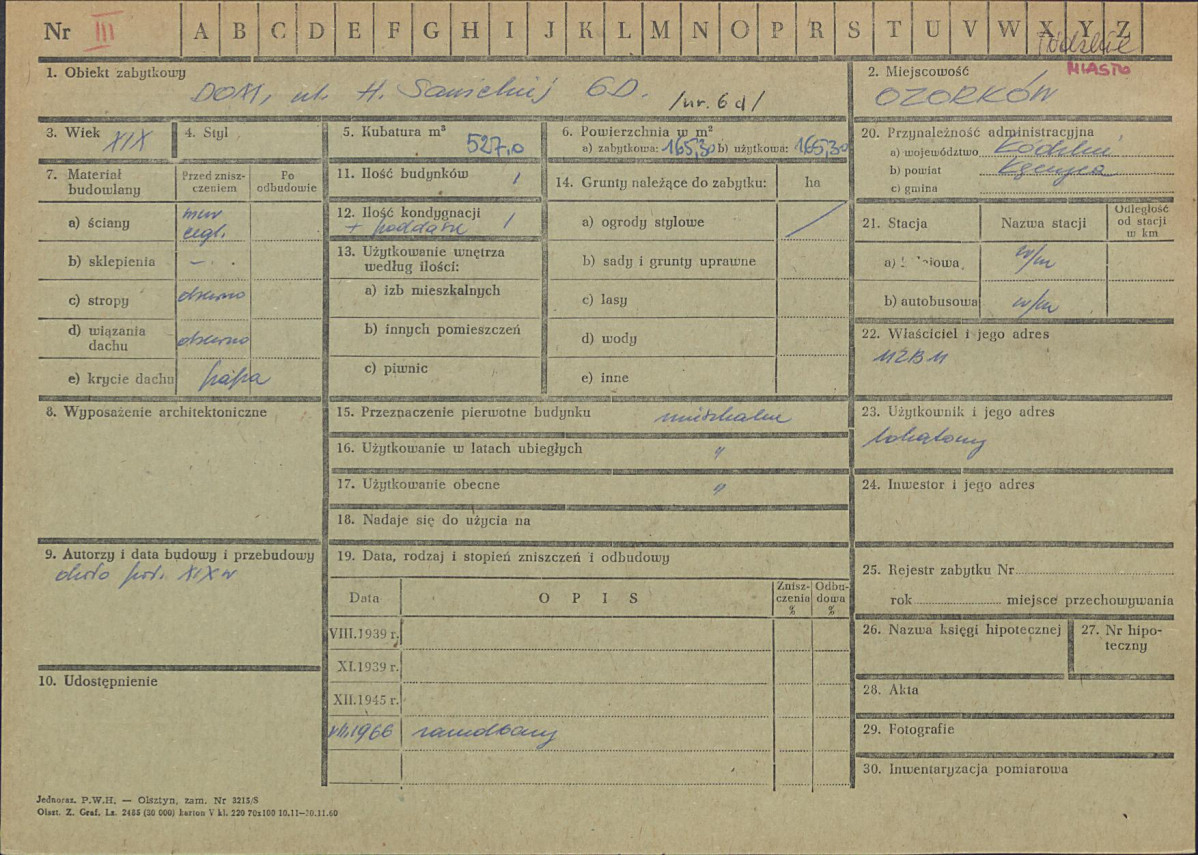 Nr III A B C D E F G H I J K L M N O P R S T U V W X Y Z
łódzkie
MIASTO
1. Obiekt zabytkowy
DOM, ul. H. Sawickiej 6D. /nr. 6d/
2. Miejscowość
OZORKÓW
3. Wiek XIX
4. Styl
5. Kubatura m³
527,0
6. Powierzchnia w m²
a) zabytkowa: 165,30 b) użytkowa: 165,30
20. Przynależność administracyjna
a) województwo Łódzkie
b) powiat Łęczyca
c) gmina
7. Materiał budowlany
Przed zniszczeniem
Po odbudowie
a) ściany
mur cegl.
b) sklepienia
– .
c) stropy
drewno
d) wiązania dachu
drewno
e) krycie dachu
papa
11. Ilość budynków 1
12. Ilość kondygnacji
+ poddasze 1
13. Użytkowanie wnętrza
według ilości:
a) izb mieszkalnych
b) innych pomieszczeń
c) piwnic
14. Grunty należące do zabytku: ha
a) ogrody stylowe /
b) sady i grunty uprawne
c) lasy
d) wody
e) inne
21. Stacja
Nazwa stacji
Odległość
od stacji
w km
a) w/m
b) autobusowa w/m
22. Właściciel i jego adres
MZBM
8. Wyposażenie architektoniczne
15. Przeznaczenie pierwotne budynku mieszkalne
16. Użytkowanie w latach ubiegłych "
17. Użytkowanie obecne "
18. Nadaje się do użycia na
23. Użytkownik i jego adres
lokatorzy
24. Inwestor i jego adres
9. Autorzy i data budowy i przebudowy
około poł. XIX w
19. Data, rodzaj i stopień zniszczeń i odbudowy
Data
O P I S
Zniszczenia
%
Odbudowa
%
VIII.1939 r.
XI.1939 r.
XII.1945 r.
VII.1966 zaniedbany
25. Rejestr zabytku Nr
rok miejsce przechowywania
26. Nazwa księgi hipotecznej
27. Nr hipoteczny
10. Udostępnienie
28. Akta
29. Fotografie
30. Inwentaryzacja pomiarowa
Jednoraz. P.W.H. — Olsztyn, zam. Nr 3215/S
Olszt. Z. Graf. Lz. 2485 (30 000) karton V kl. 220 70x100 10.11—30.11.60